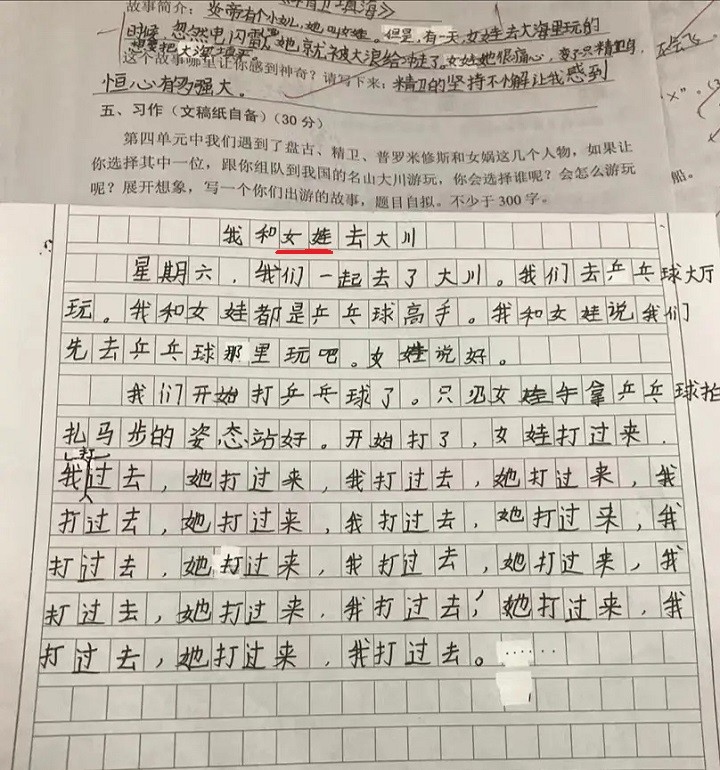 故事简介：炎帝有个小女儿，她叫女娃。但是，有一天，女娃去大海里玩的
时候，忽然电闪雷，她就被大浪给冲走了。女娃她很痛心，变了只精卫鸟，
想要把大海填平。
这个故事哪里让你感到神奇？请写下来：精卫的坚持不懈让我感到
恒心有多强大。
五、习作（文稿纸自备）（30分）
第四单元中我们遇到了盘古、精卫、普罗米修斯和女娲这几个人物，如果让
你选择其中一位，跟你组队到我国的名山大川游玩，你会选择谁呢？会怎么游玩
呢？展开想象，写一个你们出游的故事，题目自拟。不少于300字。
船。
我和女娃去大川
星期六，我们一起去了大川。我们去乒乓球大厅
玩。我和女娃都是乒乓球高手。我和女娃说我们
先去乒乓球那里玩吧。女娃说好。
我们开始打乒乓球了。只见女娃手拿乒乓球拍
扎马步的姿态站好。开始打了，女娃打过来，
我打过去，她打过来，我打过去，她打过来，我
打过去，她打过来，我打过去，她打过来，我
打过去，她打过来，我打过去，她打过来，我
打过去，她打过来，我打过去，她打过来，我
打过去，她打过来，我打过去。……